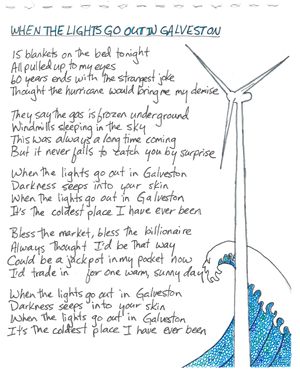 WHEN THE LIGHTS GO OUT IN GALVESTON
15 blankets on the bed tonight
All pulled up to my eyes
60 years ends with the strangest joke
Thought the hurricane would bring me my demise
They say the gas is frozen underground
Windmills sleeping in the sky
This was always a long time coming
But it never fails to catch you by surprise
When the lights go out in Galveston
Darkness seeps into your skin
When the lights go out in Galveston
It's the coldest place I have ever been
Bless the market, bless the billionaire
Always thought I'd be that way
Could be a jackpot in my pocket now
I'd trade in for one warm, sunny day
When the lights go out in Galveston
Darkness seeps into your skin
When the lights go out in Galveston
It's the coldest place I have ever been